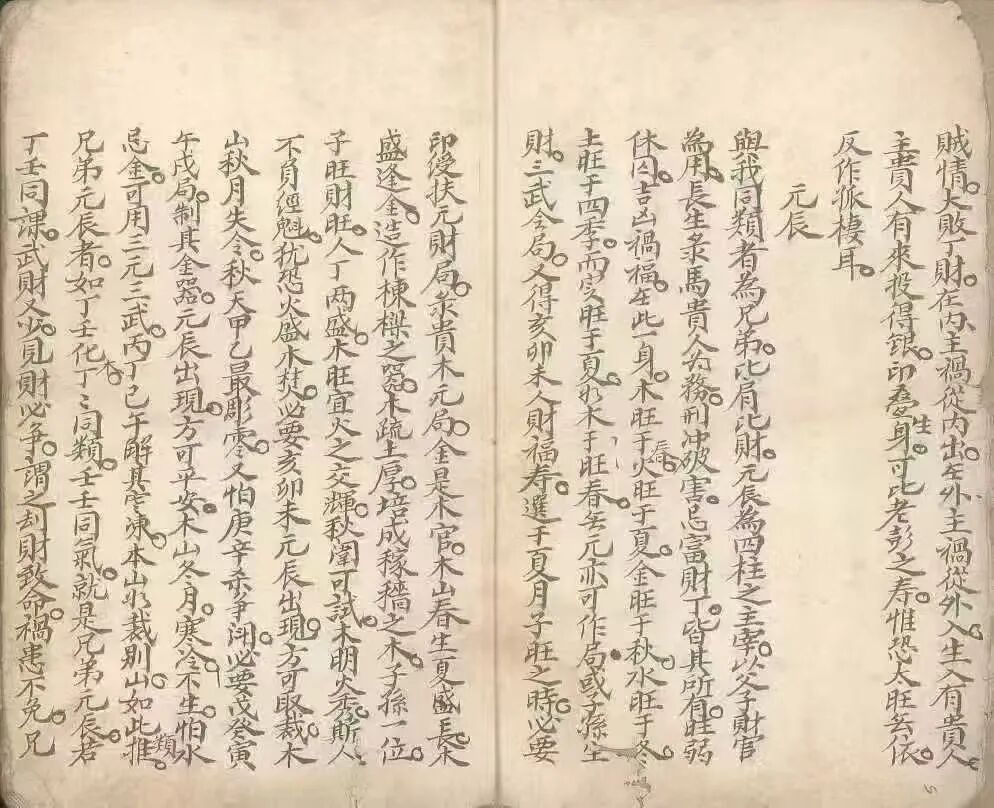 賊情。大敗丁財。在內主禍從內出。在外主禍從外入。生入有貴人
主貴人有來投得銀。印叠生身。可比老彭之寿。惟恐太旺無依。
反作孤棲耳。
元辰
與我同類者為兄弟比肩比財。元辰為四柱之主宰。以父子財官
為用。長生彔馬貴人為務。刑冲破害忌富財丁。皆其所有。旺弱
休囚。吉凶禍福在此一身。木旺于春。火旺于夏。金旺于秋。水旺于冬。
土旺于四季。而又旺于夏。水木于旺春。無元亦可作局。或子孫生
財。三武合局。又得亥卯未人財福寿。選于夏月子旺之時。必要
印綬扶元財局。彔貴木元局。金是木官。木山春生夏盛長。木
盛逢金。造作棟樑之器。木疏土厚。培成稼穡之木。子孫一位。
子旺財旺。人丁两盛。木旺宜火之交輝。秋闈可試。木明火秀。斯人
不負經魁。犹恐火盛木焚。必要亥卯未元辰出現。方可取裁。木
山秋月失令。秋天甲乙最彫零。又怕庚辛來争闹。必要戊癸寅
午戌局。制其金器。元辰出現。方可平安。木山冬月。寒冷不生。怕水
忌金。可用三元三武。丙丁巳午解其寒凍。本山水裁别山如此類推。
兄弟元辰者。如丁壬化木。丁丁同類。壬壬同氣。就是兄弟元辰。若
丁壬同課。武財又少。見財必争。謂之刦財致命。禍患不免。兄